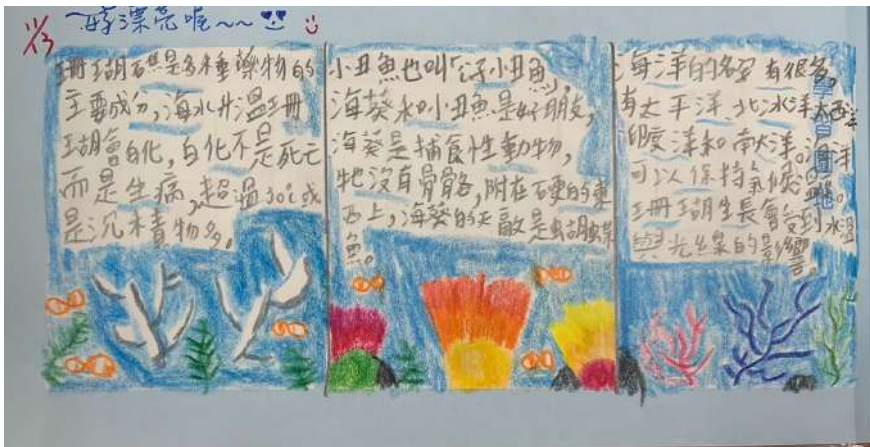 11/13
好漂亮喔~~
珊瑚礁是多種藥物的
主要成分,海水升溫珊
瑚會白化,白化不是死亡
而是生病,超過30℃或
是沉積物多。
小丑魚也叫「公子小丑魚」,
海葵和小丑魚是好朋友,
海葵是捕食性動物,
牠沒有骨骼,附在硬的東
西上,海葵的天敵是蝴蝶
魚。
海洋的名字有很多,
有太平洋、北冰洋、大西洋
印度洋和南大洋。海洋
可以保持氣候
珊瑚生長會受到水溫
與光線的影響。
學習園地